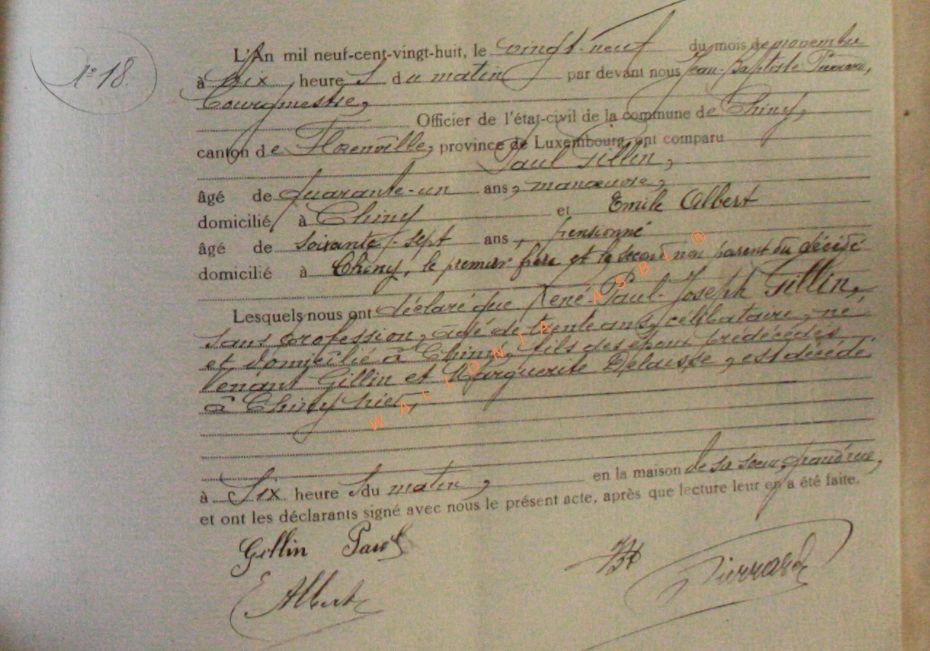 N° 18.
L'An mil neuf-cent-vingt-huit, le vingt-neuf du mois de novembre
à dix heure s du matin par devant nous Jean-Baptiste Pierrard,
bourgmestre,
Officier de l'état-civil de la commune de Chiny,
canton de Florenville, province de Luxembourg ont comparu
Paul Gillin,
âgé de quarante-un ans, manœuvre,
domicilié à Chiny et Emile Albert
âgé de soixante-sept ans, pensionné
domicilié à Chiny, le premier frère et le second non parent du décédé
Lesquels nous ont déclaré que René-Paul-Joseph Gillin,
sans profession, âgé de trente ans, célibataire, né
et domicilié à Chiny, fils des époux prédécédés
Gillin et Marguerite Delaisse, est décédé
à Chiny hier,
à six heure s du matin, en la maison de sa sœur,
et ont les déclarants signé avec nous le présent acte, après que lecture leur en a été faite.
Gillin Paul
E Albert
Pierrard
WALLONIA ASBL ©